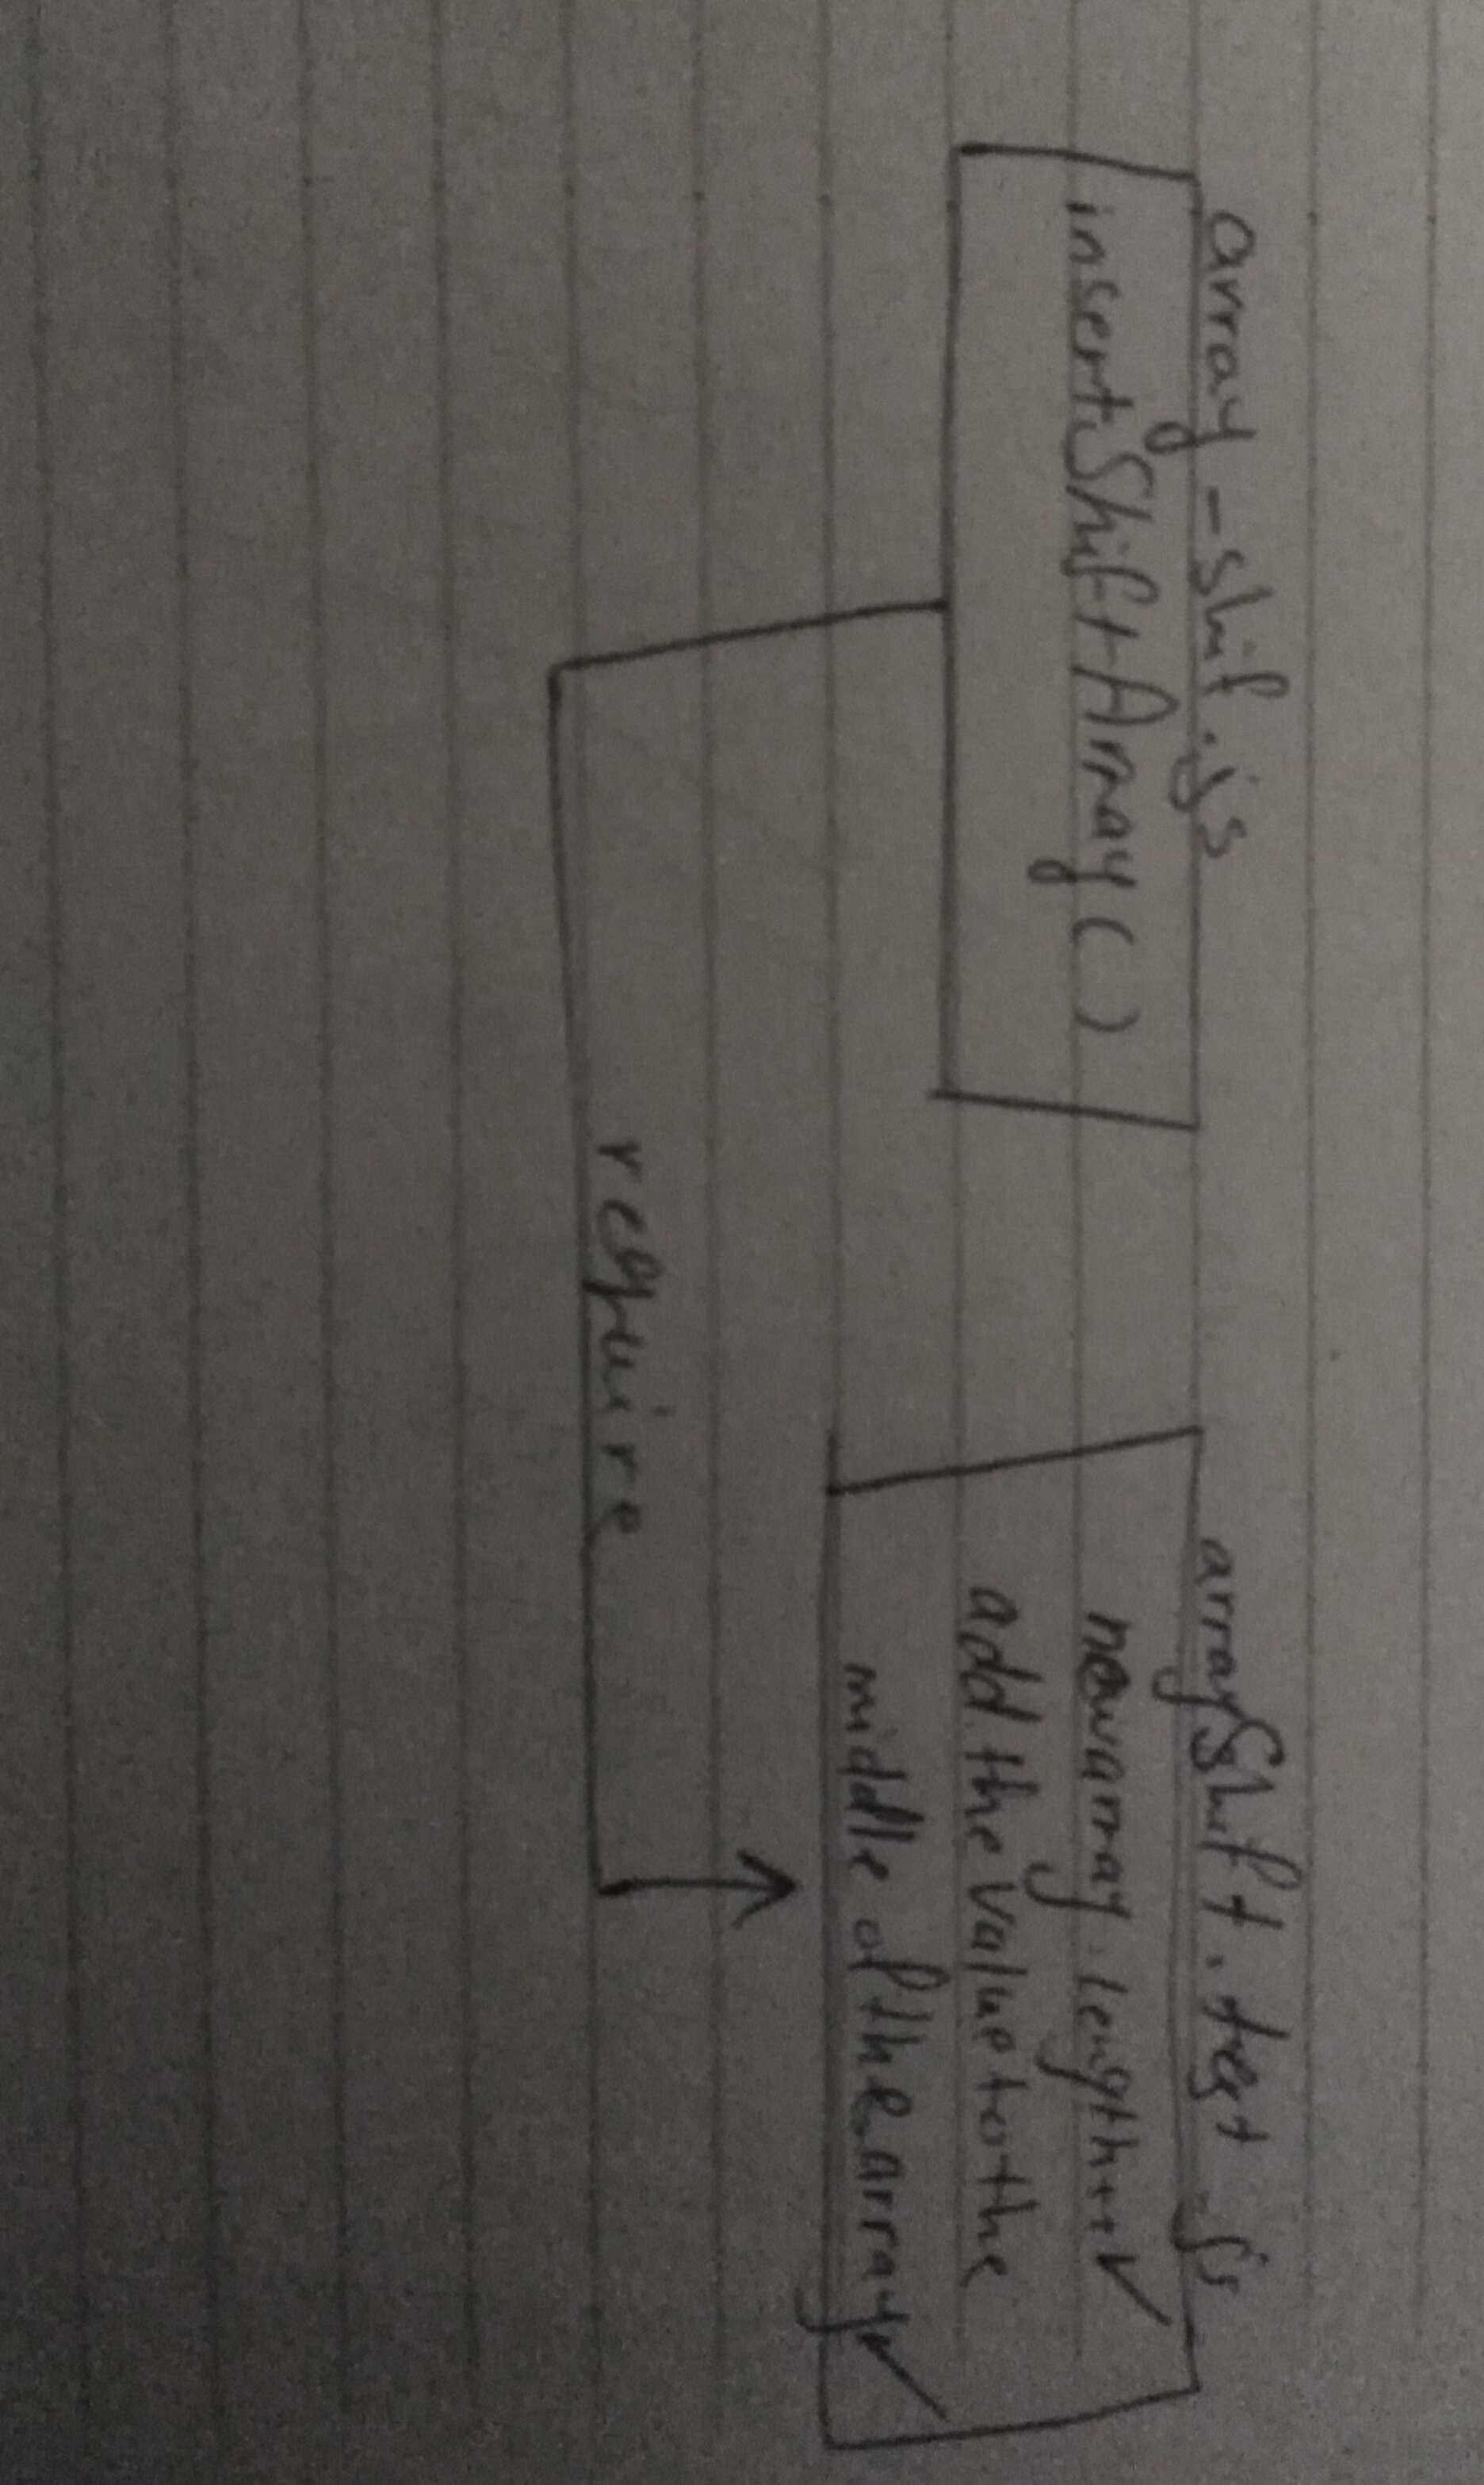 array-shif.js
insertShiftArray()
arrayShift.test.js
newarray.length++
add the value to the
middle of the array
require